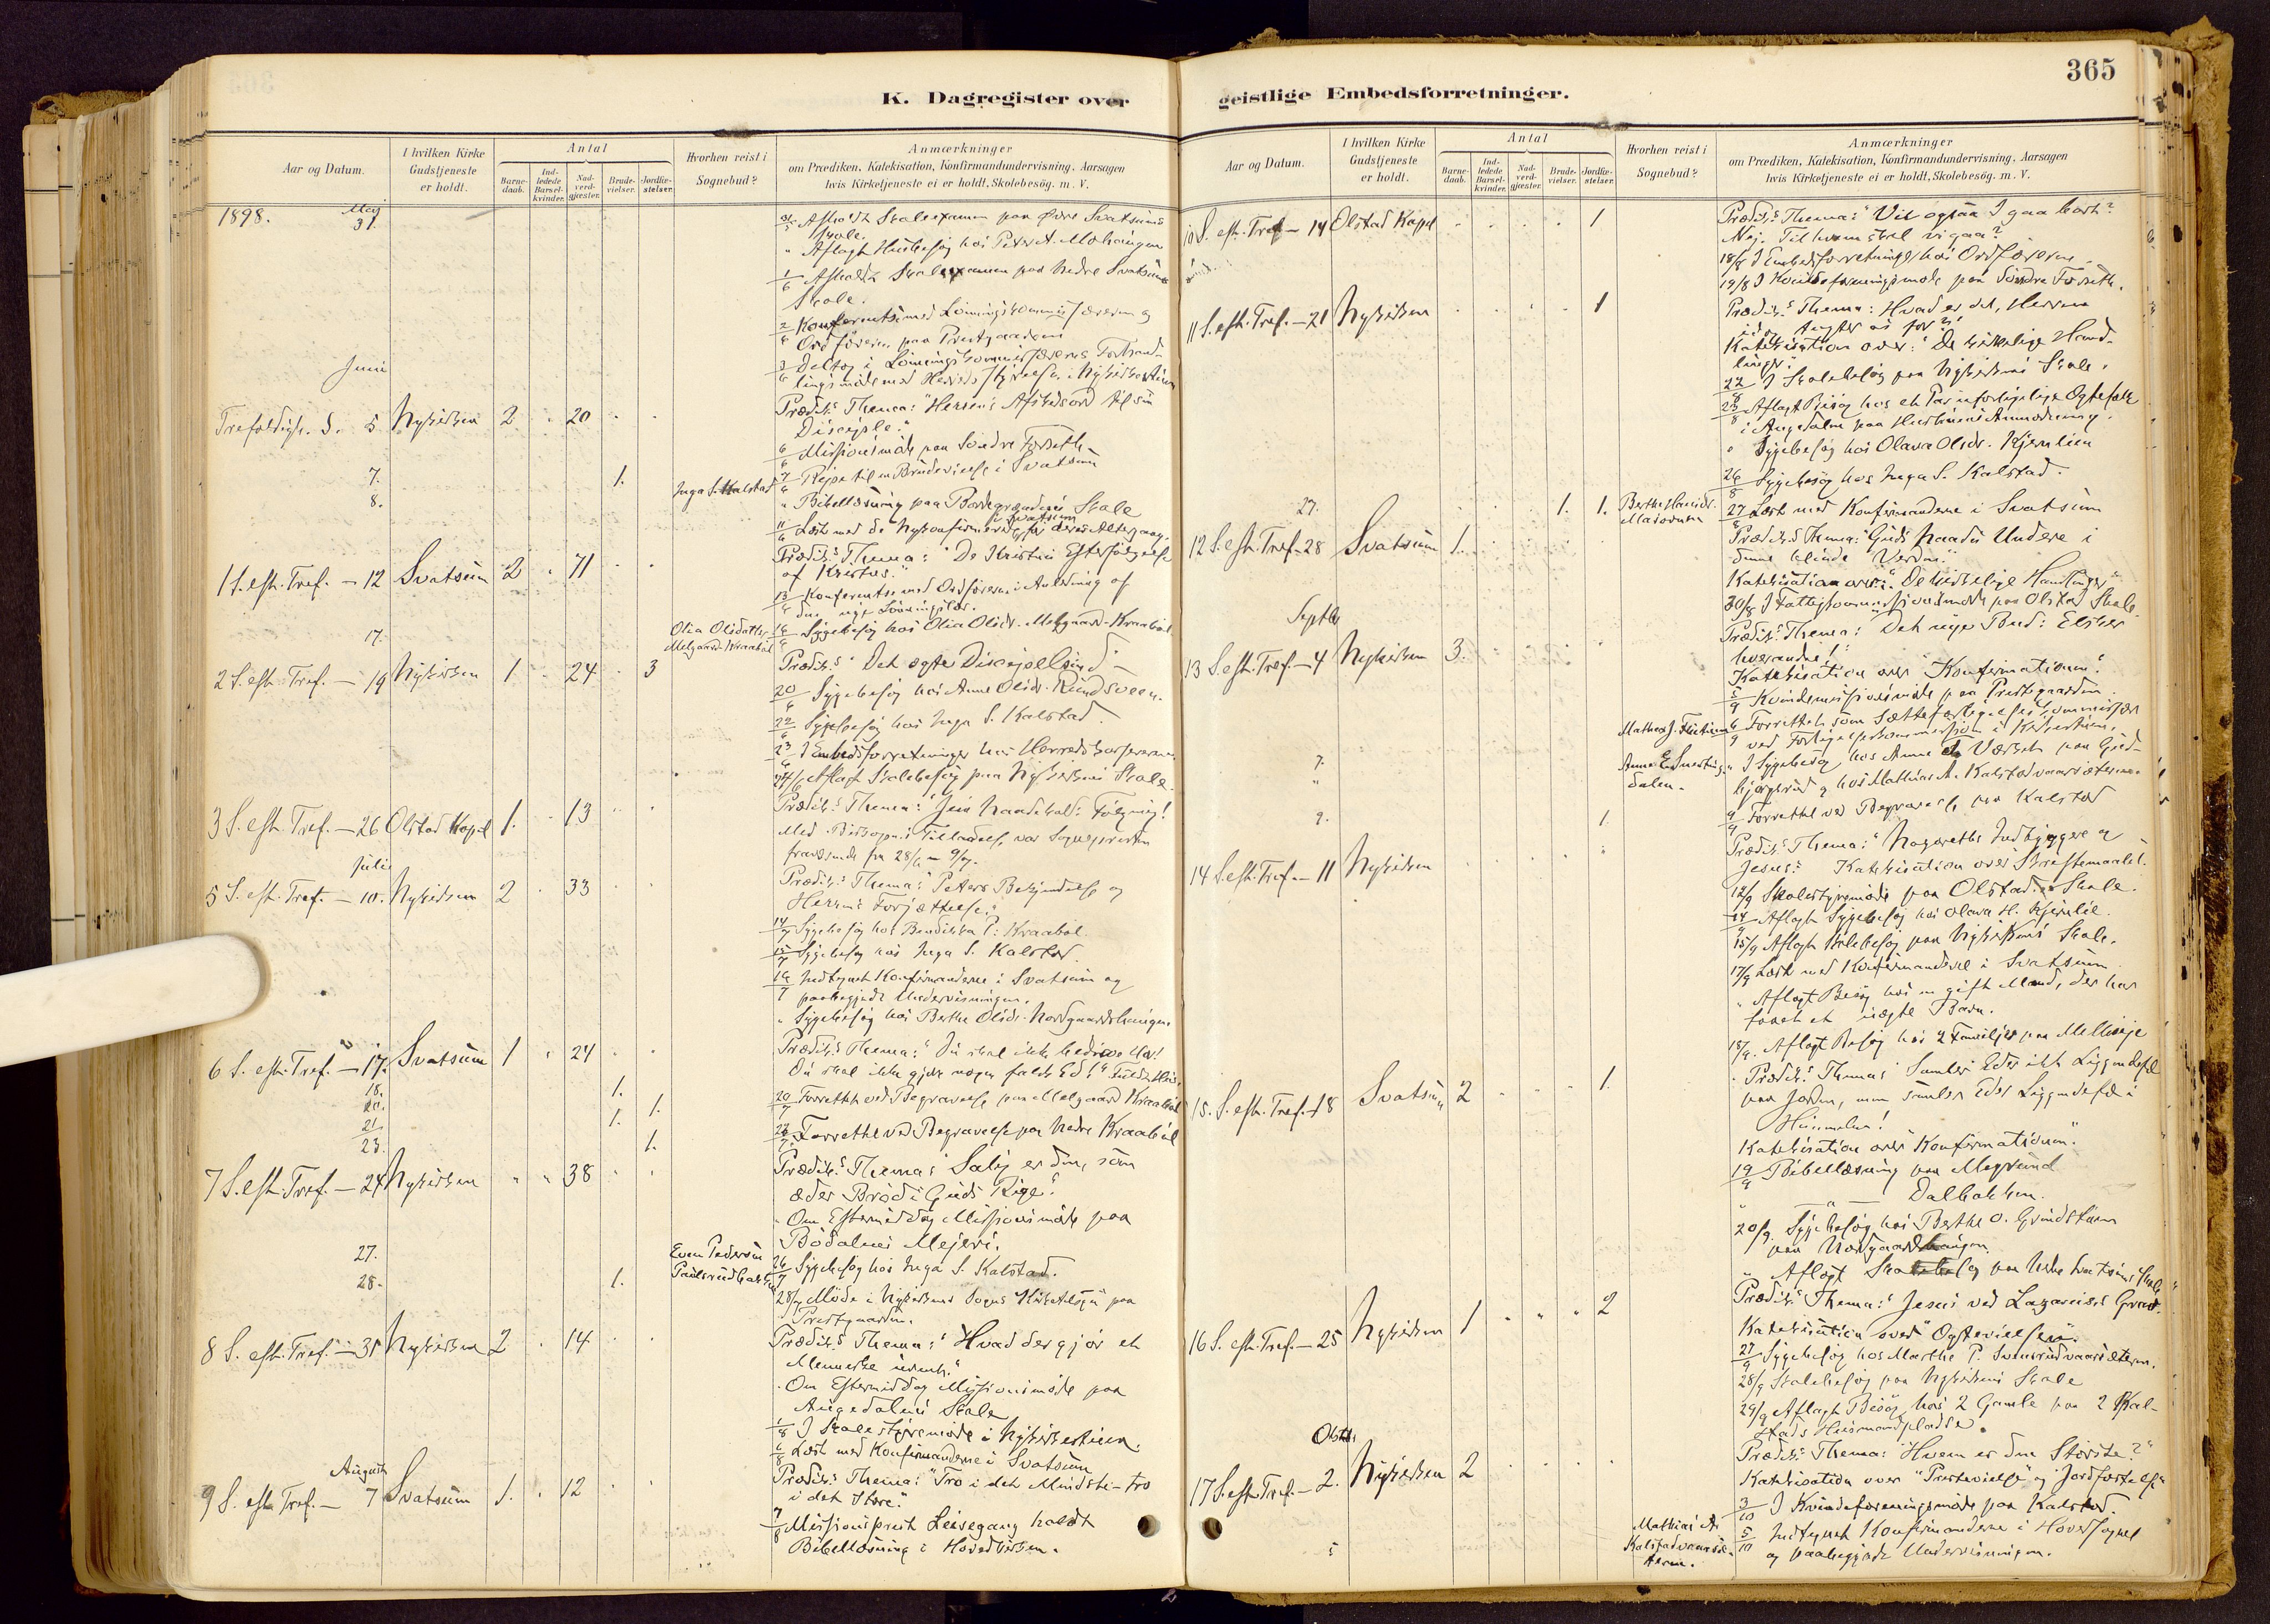 K. Dagregister over
Aar og Datum.
I hvilken Kirke
Gudstjeneste
er holdt.
Antal
Barne-
daab.
Ind-
ledede
Barsel-
kvinder.
Nad-
verd-
gjæster.
Brude-
vielser.
Jordfæ-
stelser.
Hvorhen reist i
Sognebud?
Anmærkninger
om Prædiken, Katekisation, Konfirmandundervisning, Aarsagen
hvis Kirketjeneste ei er holdt, Skolebesøg. m. V.
1898. Maj
31.
31/5 Afholdt Skoleexamen paa Øvre Svatsums
Skole.
" Aflagt Husbesøg hos Peter A. Mohaugen
1/6 Afholdt Skoleexamen paa Nedre Svatsums
Skole.
2/6 Konferents med Lønningskommissæren og
Ordføreren paa Prestgaarden
3/6 Deltog i Lønningskommissærens Forhand-
lingsmøde med Herredsstyrelsen i Nykirkestuen
Juni
Trefoldigh. S. 5. Nykirken 2 " 20 " "
Prædik.s Thema: "Herrens Afskedsord til sin
Disciple."
6/6 Missionsmøde paa Søndre Forseth
7. 1.
7/6 Reise til en Brudevielse i Svatsum
8. Inga S. Kalstad
" Bibellæsning paa Skole
11/6 Læst med de Nykonfirmerede i Svatsum før deres Altergang.
1 S. eft. Tref. — 12 Svatsum 2 " 71 " "
Prædik.s Thema: "De Kristnes Efterfølgelse
af Kristus."
13/6 Konferents med Ordføreren i Anledning af
den nye Lønningslov.
17. Olia Olsdatter
Melgaard-Kraabøl
16/6 Sygebesøg hos Olia Olsdr. Melgaard-Kraabøl
2 S. eft. Tref. — 19 Nykirken 1 " 24 " 3
Prædik.s "Det ægte Discipelsind" —
20/6 Sygebesøg hos Anne Olsdr. Rundsveen.
22/6 Sygebesøg hos Inga S. Kalstad.
23/6 I Embedsforretninger hos Herredskassereren
24/6 Aflagt Skolebesøg paa Nykirkens Skole.
3 S. eft. Tref. — 26 Olstad Kapel 1. " 13 " "
Prædik.s Thema: "Jesu Naadekald: Følg mig!
Med Biskopens Tilladelse var Sognepresten
fraværende fra 28/6 — 9/7.
Juli
5 S. eft. Tref. — 10. Nykirken 2 " 33 " "
Prædik.s Thema: "Peters Bekjendelse og
Herrens Forjættelse."
14/7 Sygebesøg hos Bendikka P. Kraabøl.
15/7 Sygebesøg hos Inga S. Kalstad.
16/7 Indtegnet Konfirmanderne i Svatsum og
paabegyndt Undervisningen.
" Sygebesøg hos Berthe Olsdr. Nordgaardshaugen.
6 S. eft. Tref. — 17. Svatsum 1 " 24 " "
Prædik.s Thema: "Du skal ikke bedrive Hor!
Du skal ikke gjøre nogen falsk Ed!"
18. 1.
20. 1.
21. 1.
23. 1.
20/7 Forrettet ved Begravelse paa Melgaard Kraabøl
23/7 Forrettet ved Begravelse paa Nedre Kraabøl
7 S. eft. Tref. — 24 Nykirken " " 38 " "
Prædik.s Thema: "Salig er den, som
æder Brød i Guds Rige."
" Om Eftermiddag Missionsmøde paa
Bødalens Mejeri.
27. Even Pedersen
Paulsrudbakken
28. 1.
26/7 Sygebesøg hos Inga S. Kalstad.
28/7 Møde i Nykirkens Sogns "Kirketilsyn" paa
Prestgaarden.
8 S. eft. Tref. — 31 Nykirken 2 " 14 " "
Prædik.s Thema: "Hvad der gjør et
Menneske urent."
" Om Eftermiddag Missionsmøde paa
Augedalens Skole
1/8 I Skolestyremøde i Nykirkestuen.
6/8 Læst med Konfirmanderne i Svatsum
August
9 S. eft. Tref. — 7 Svatsum 1. " 12 " "
Prædik.s Thema: "Tro i det Mindste — tro
i det Store."
7/8 Missionsprest Leisegang holdt
Bibellæsning i Hovedkirken.
geistlige Embedsforretninger.
365
Aar og Datum.
I hvilken Kirke
Gudstjeneste
er holdt.
Antal
Barne-
daab.
Ind-
ledede
Barsel-
kvinder.
Nad-
verd-
gjæster.
Brude-
vielser.
Jordfæ-
stelser.
Hvorhen reist i
Sognebud?
Anmærkninger
om Prædiken, Katekisation, Konfirmandundervisning, Aarsagen
hvis Kirketjeneste ei er holdt, Skolebesøg. m. V.
10 S. eft. Tref. — 14 Olstad Kapel " " " " 1
Prædik.s Thema: "Vil ogsaa I gaa bort?
Nej. Til hvem skal vi gaa?
18/8 I Embedsforretninger hos Ordføreren.
19/8 I Kvindeforeningsmøde paa Søndre Forseth.
11 S. eft. Tref. — 21 Nykirken " " " " 1
Prædik.s Thema: Hvad er det, Herren
idag for?"
Katekisation over: "De kirkelige Hand-
linger."
22/8 I Skolebesøg paa Nykirkens Skole.
23/8 Aflagt Besøg hos et Par uforligelige Ægtefolk
i Augedalen paa Hustruens Anmodning.
" Sygebesøg hos Olava Olsdr. Kjernlien
26/8 Sygebesøg hos Inga S. Kalstad.
27. 1. 1. Berthe Hansdr.
27/8 Læst med Konfirmanderne i Svatsum
12 S. eft. Tref. 28 Svatsum 1.
Prædik.s Thema: "Guds Naades Undere i
denne blinde Verden."
Katekisation over: "De kirkelige Handlinger"
30/8 I Fattigkommissionsmøde paa Olstad Skole
Septbr
13 S. eft. Tref. — 4 Nykirken 3.
Prædik.s Thema: Det nye Bud: Elsker
hverandre!"
Katekisation over "Konfirmationen".
5/9 Kvindemissionsmøde paa Prestegaarden
6/9 Forrettet som Sætteforligelseskommissær
ved Forligelseskommission i Kirkestuen.
7. Anne E.
dalen.
" I Sygebesøg hos Anne
og hos Mathias A. Kalstadvaarsæteren
9. 1.
9/9 Forrettet ved Begravelse paa Kalstad
14 S. eft. Tref. — 11 Nykirken
Prædik.s Thema: "Nazareths Indbyggere og
Jesus." Katekisation over
12/9 Skolestyremøde paa Olstad Skole.
14/9 Aflagt Sygebesøg hos Olava H. Kjernlie.
15/9 Aflagt Skolebesøg paa Nykirkens Skole.
17/9 Læst med Konfirmanderne i Svatsum
" Aflagt Besøg hos en gift Mand, der har
faaet et uægte Barn.
18/9. Aflagt Besøg hos 2 Familjer paa
15. S. eft. Tref. — 18 Svatsum 2 " " " 1.
" Prædik.s Thema: Samler Eder ikke Liggendefæ
paa Jorden, men samler Eder Liggendefæ i
Himmelen!
Katekisation over "Konfirmationen".
19/9 Bibellæsning paa
" —"— Dalbakken.
20/9. Sygebesøg hos Berthe O. Grindstuen
paa Nordgaardshaugen.
" Aflagt Skolebesøg paa Nedre Svatsums Skole
16 S. eft. Tref. — 25 Nykirken 1 " " " 2
Prædik.s Thema: "Jesus ved Lazarus's Grav."
Katekisation over "Ægtevielsen".
27/9 Sygebesøg hos Marthe P.
28/9 Skolebesøg paa Nykirkens Skole
29/9 Aflagt Besøg hos 2 Gamle paa 2 Kal-
stads Husmandspladse.
Oktbr.
17 S. eft. Tref. — 2. Nykirken 2
Prædik.s Thema: "Hvem er den Største?"
Katekisation over "Prestevielse" og "Jordfæstelse"
3/10 I Kvindeforeningsmøde paa Kalstad.
5 Mathias A.
Kalstadvaarsæ-
teren.
5/10 Indtegnet Konfirmanderne i Hovedsognet
og paabegyndt Undervisningen.